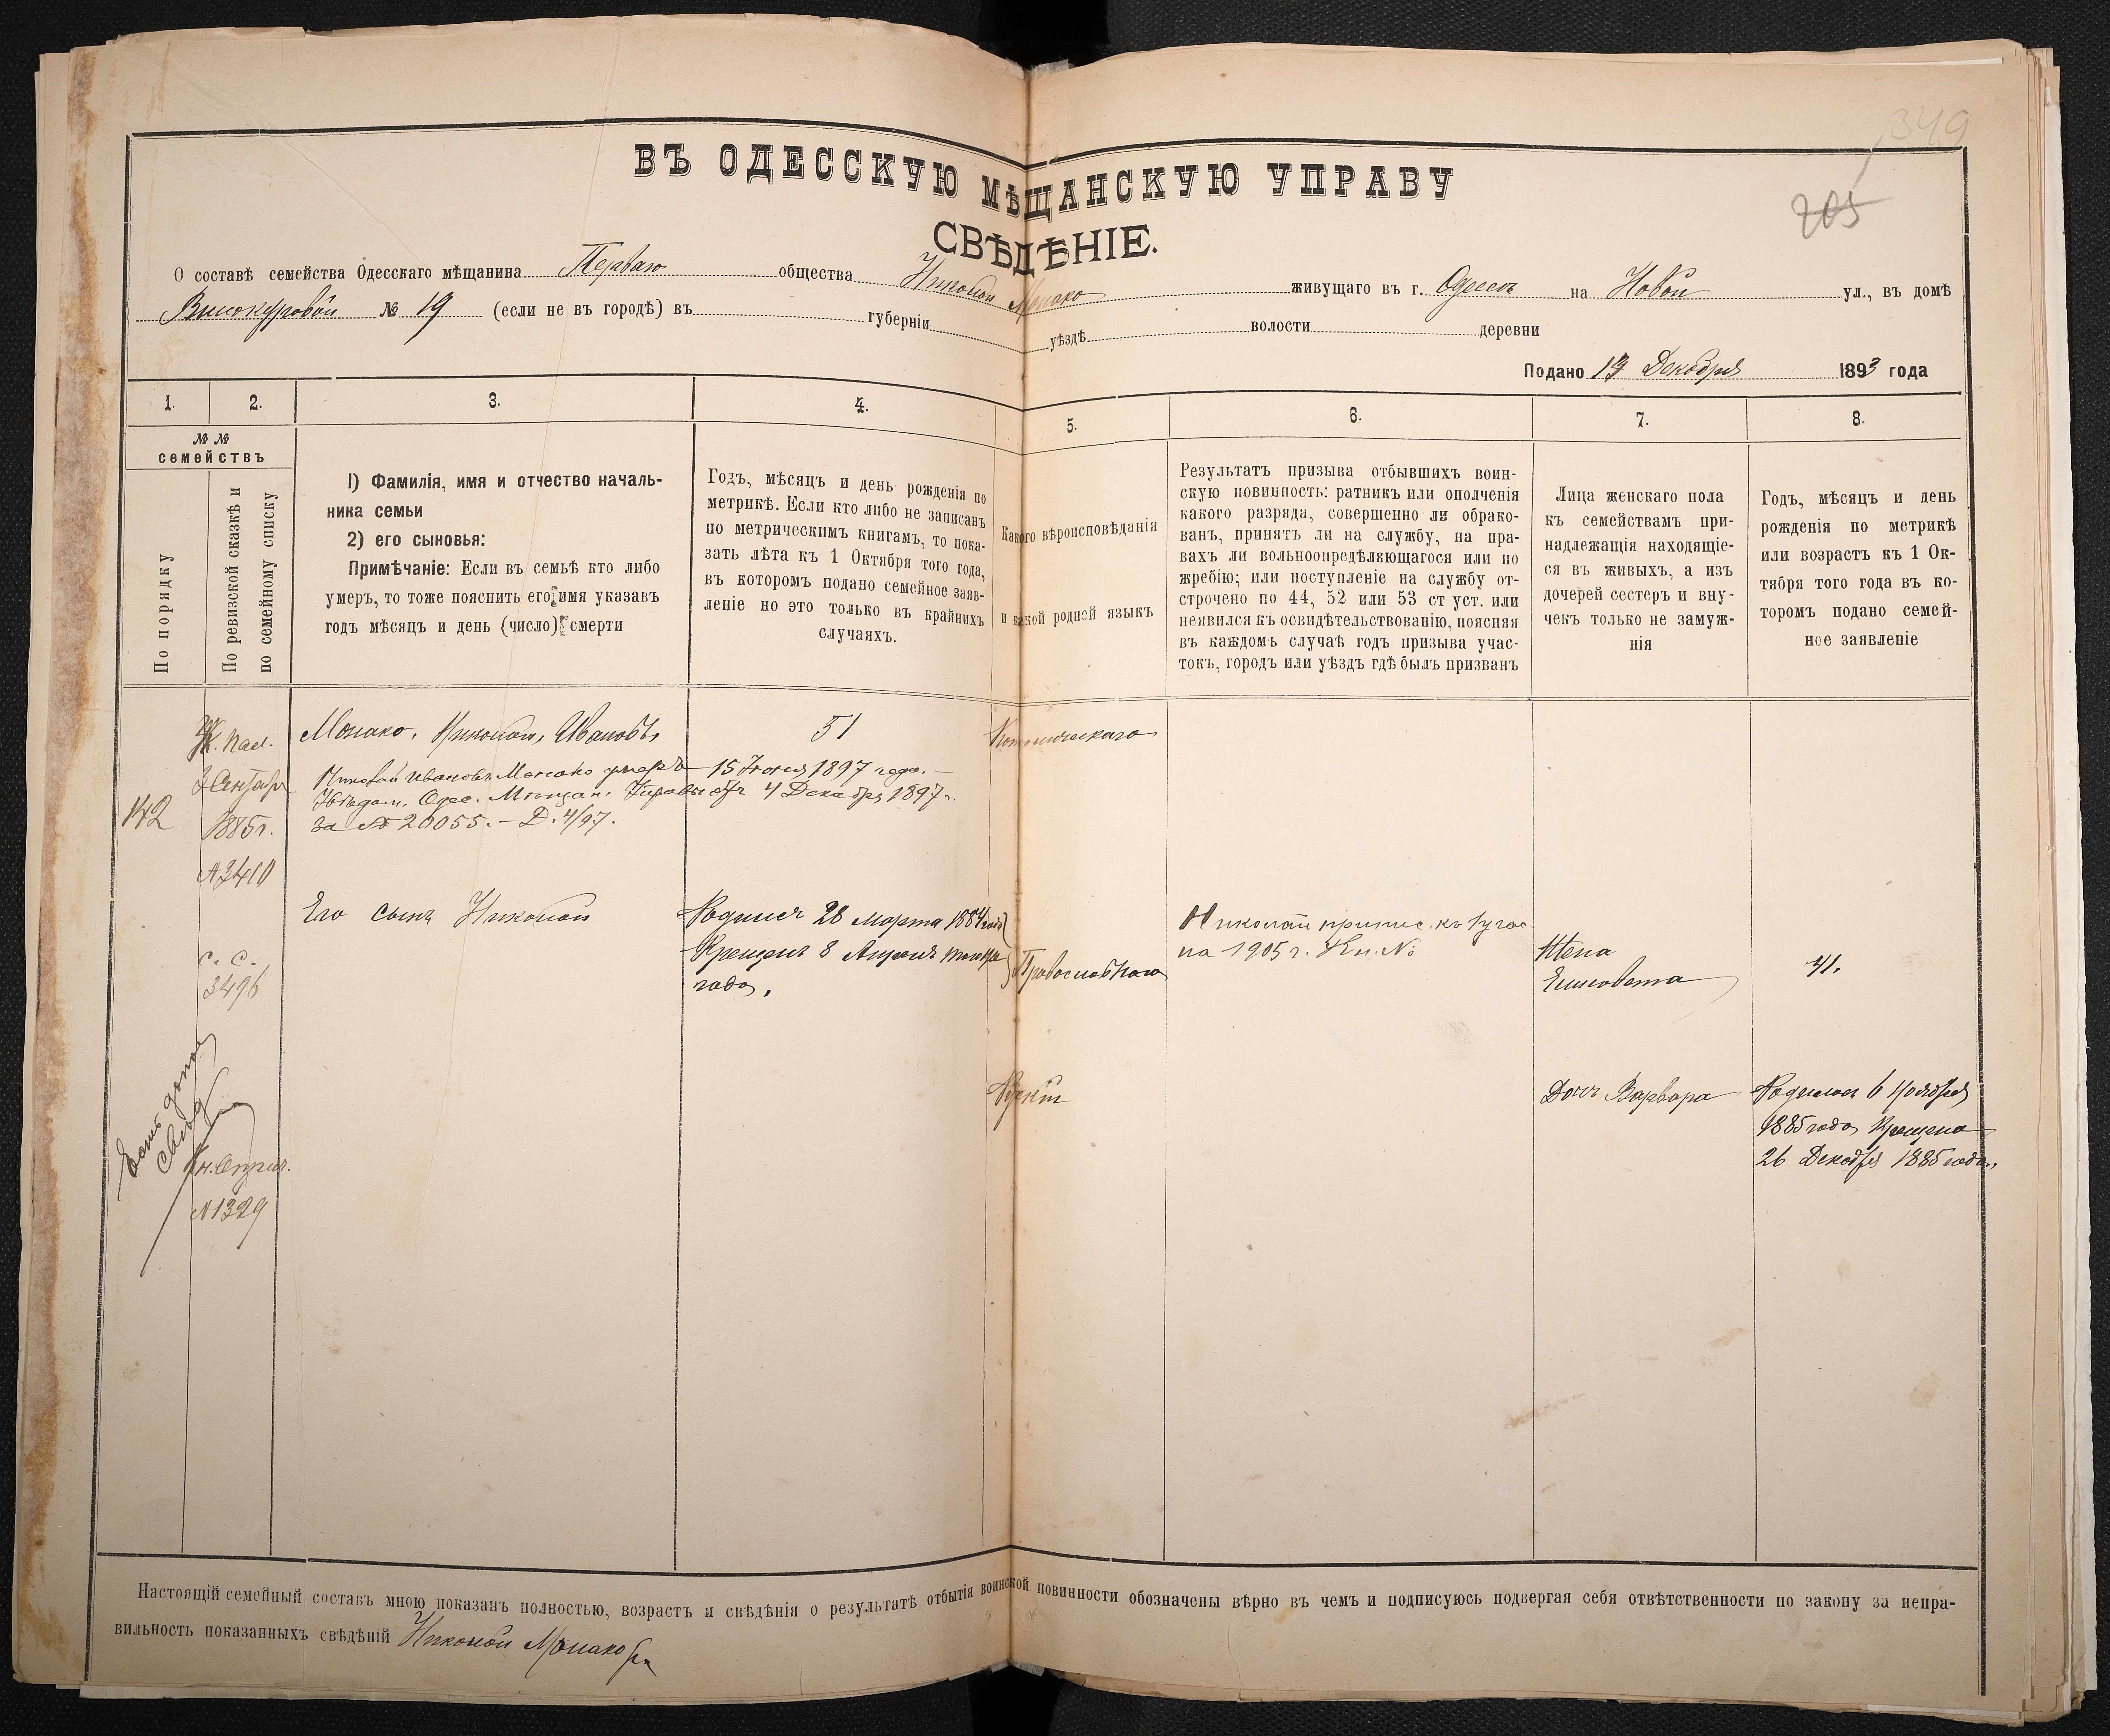 349
205
ВЪ ОДЕССКУЮ МѢЩАНСКУЮ УПРАВУ
СВѢДѢНІЕ.
О составѣ семейства Одесскаго мѣщанина Перваго общества Николай Монако живущаго въ г. Одессѣ на Новой ул., въ домѣ
№ 19 (если не въ городѣ) въ губерніи уѣздѣ волости деревни
Подано 19 Декабря 1893 года
1. 2. 3. 4. 5. 6. 7. 8.
№ №
семействъ
По порядку
По ревизской сказкѣ и
по семейному списку
1) Фамилія, имя и отчество началь-
ника семьи
2) его сыновья:
Примѣчаніе: Если въ семьѣ кто либо
умеръ, то тоже пояснить его имя указавъ
годъ мѣсяцъ и день (число) смерти
Годъ, мѣсяцъ и день рожденія по
метрикѣ. Если кто либо не записанъ
по метрическимъ книгамъ, то пока-
зать лѣта къ 1 Октября того года,
въ которомъ подано семейное заяв-
леніе но это только въ крайнихъ
случаяхъ.
Какого вѣроисповѣданія
и какой родной языкъ
Результатъ призыва отбывшихъ воин-
скую повинность: ратникъ или ополченія
какого разряда, совершенно ли обрако-
ванъ, принятъ ли на службу, на пра-
вахъ ли вольноопредѣляющагося или по
жребію; или поступленіе на службу от-
строчено по 44, 52 или 53 ст уст. или
неявился къ освидѣтельствованію, поясняя
въ каждомъ случаѣ годъ призыва учас-
токъ, городъ или уѣздъ гдѣ былъ призванъ
Лица женскаго пола
къ семействамъ при-
надлежащія находящіе-
ся въ живыхъ, а изъ
дочерей сестеръ и вну-
чекъ только не замуж-
нія
Годъ, мѣсяцъ и день
рожденія по метрикѣ
или возрастъ къ 1 Ок-
тября того года въ ко-
торомъ подано семей-
ное заявленіе
142
1885г.
№3410
с. с.
3496
№1329
Монако, Николай, Ивановъ,
51
Николай Ивановъ Монако умеръ 15 Іюня 1897 года. —
Увѣдом. Одес. Мѣщан. Управы отъ 4 Декабря 1897 г.
за № 20055. — Д. 4/97.
Его сынъ Николай
Родился 28 Марта 1884 года
Крещенъ 8 Апрѣля того же
года,
Православнаго
Николай припис. къ 1 учас.
на 1905 г. Кн. №
Жена
Елисовета
41.
Дочь Варвара
Родилась 6 Ноября
1885 года Крещена
26 Декабря 1885 года.
Настоящій семейный составъ мною показанъ полностью, возрастъ и свѣдѣнія о результатѣ отбытія воинской повинности обозначены вѣрно въ чемъ и подписуюсь подвергая себя отвѣтственности по закону за непра-
вильность показанныхъ свѣдѣній Николай Монако